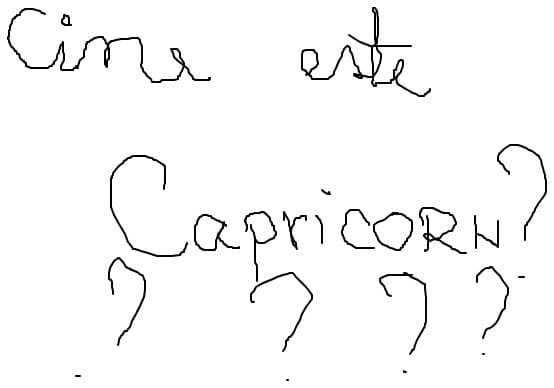 Cine este
Capricorn?
? ? ? ?